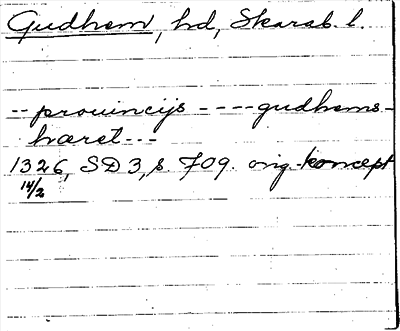 Gudhem, hd, Skarab. l.
-- prouincijs ---- gudhems-
hæret ---
1326, SD 3, s. 709. orig. koncept
14/2